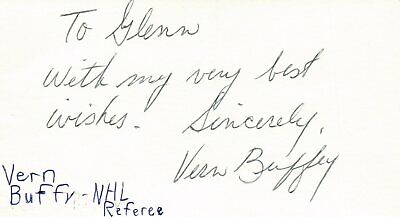 To Glenn
With my very best
wishes. Sincerely,
Vern Buffey
Vern
Buffy-NHL
Referee